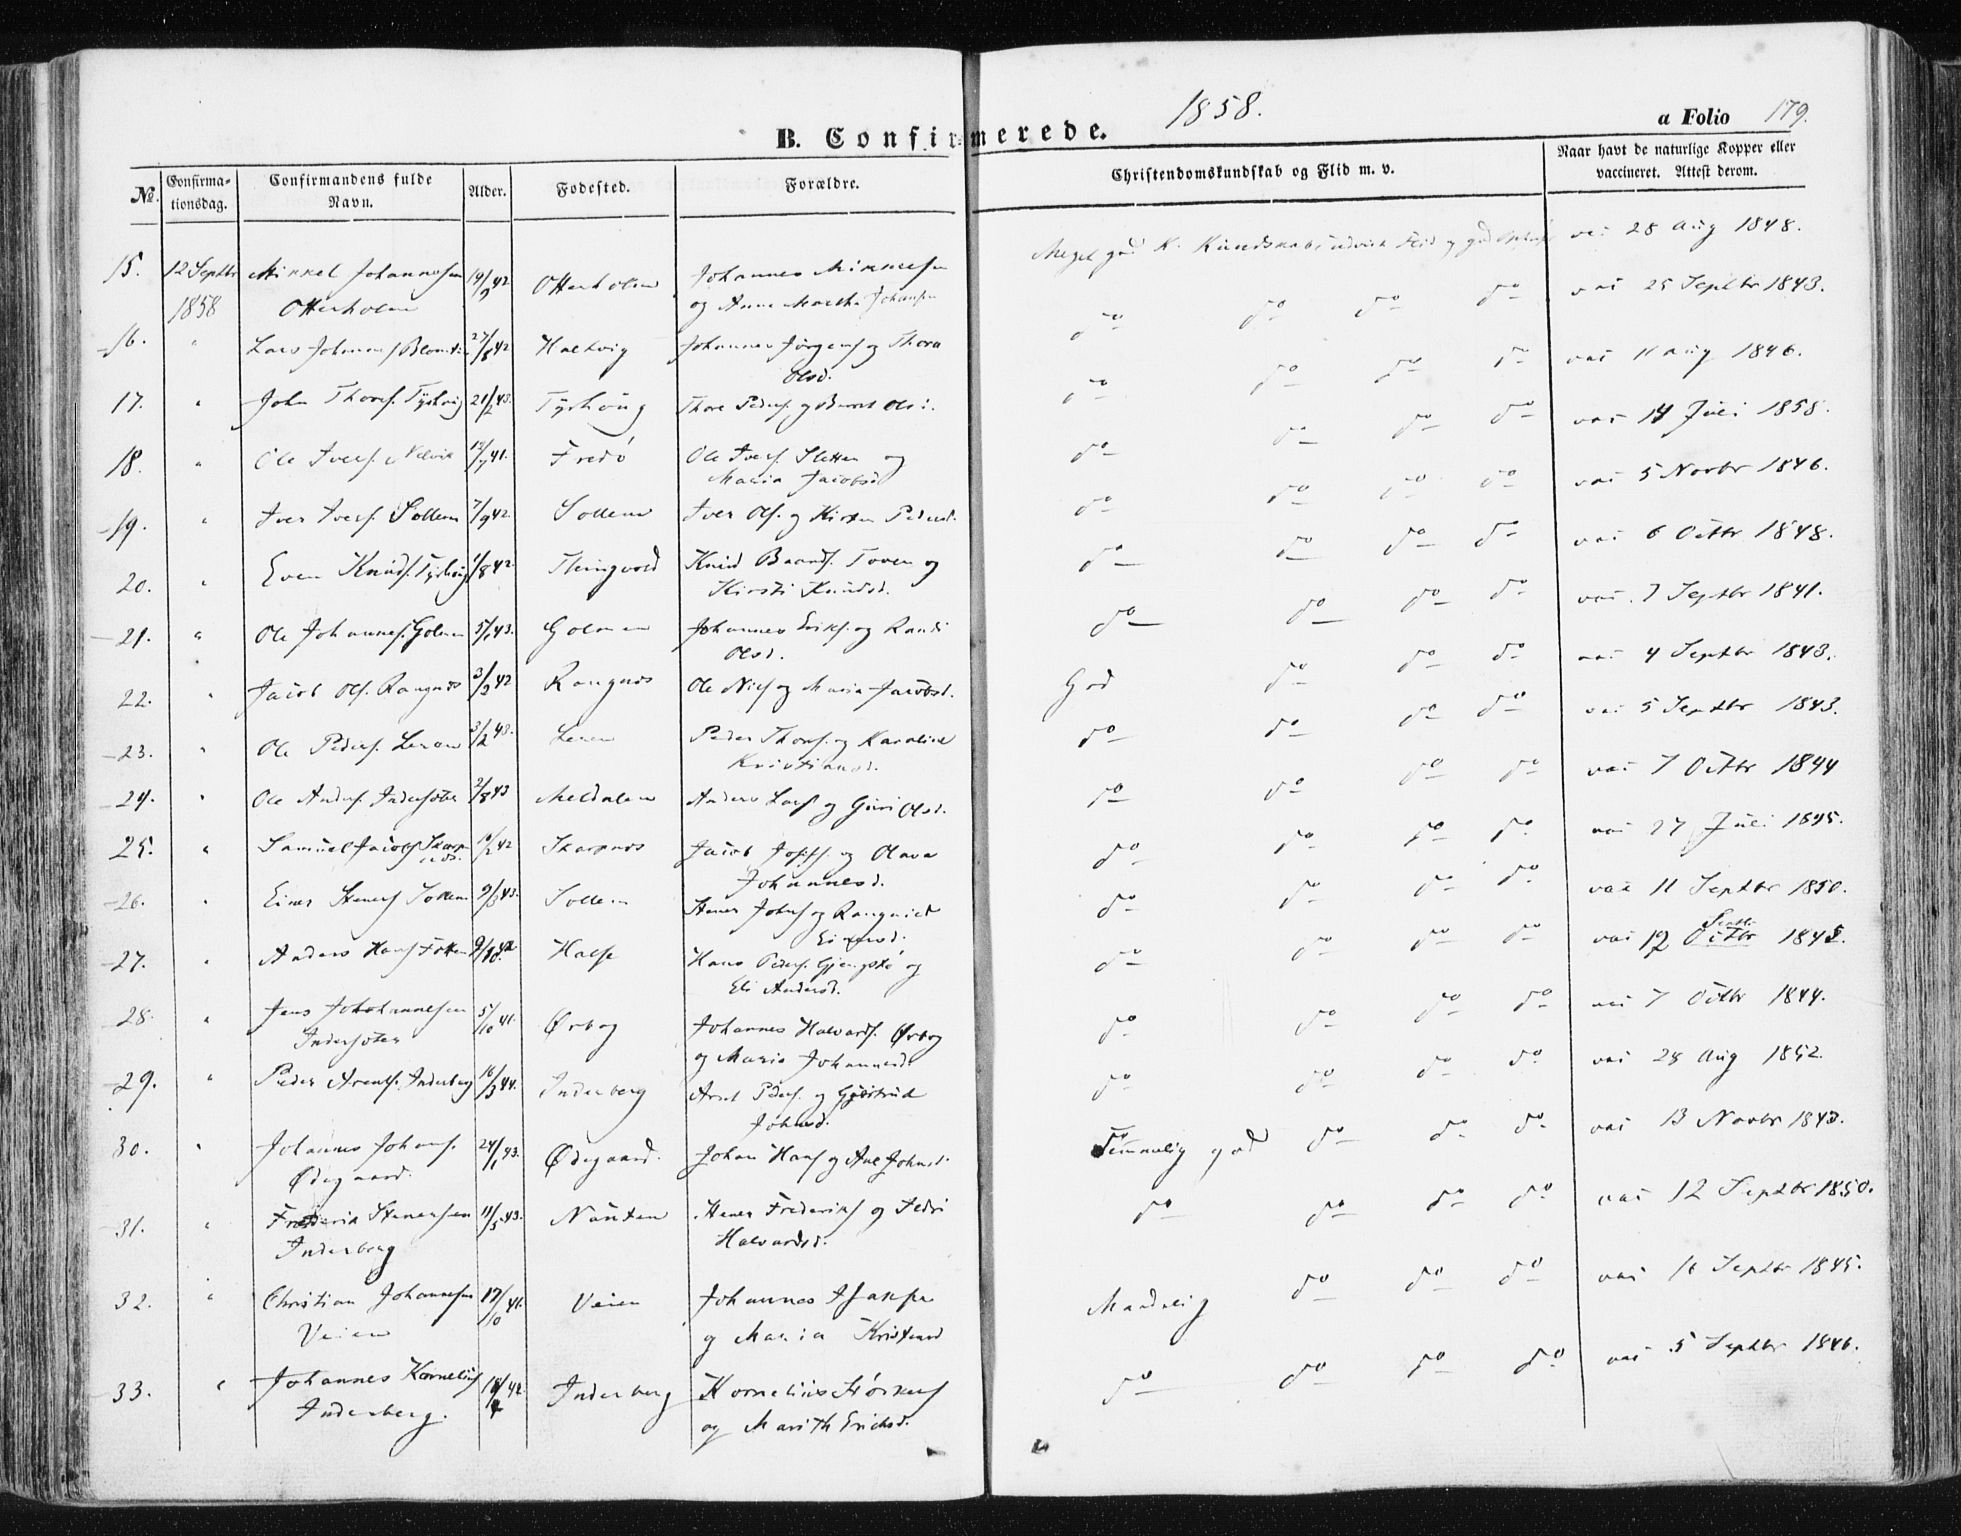 1858.
B. Confirmerede.
a Folio 179.
№
Confirma-
tionsdag.
Confirmandens fulde
Navn.
Alder.
Fodested.
Forældre.
Christendomskundskab og Flid m. v.
Naar havt de naturlige Kopper eller
vaccineret. Attest derom.
15. 12 Septbr Mikkel Johannesen 19/9 42 Otterholm Johannes Mikkelsen Meget god K. Kundskab udvist Flid og god vac 28 Aug 1848.
1858 Otterholm og Anne Marth. Johansen
16. " Lars Johannes 27/8 42 Haltvig Johannes Jörgens. og Thora do do do do vac 25 Septbr 1843.
Olsd.
17. " John Thores. Tyshaug 21/2 43. Tyshaug Thore Peders. og Beret Ols do do do do vac 11 Aug 1846.
18. " Ole Ivers. Nelvik 13/7 41. Fredö Ole Ivers. Sletten og do do do do vac 14 Juli 1858.
Maria Jacobsd
19. " Iver Ivers. Sollem 7/9 42. Sollem Iver Ols. og Kirsten Pedersd. do do do do vac 5 Novbr 1846.
20. " Even Knuds. Tyshaug 1/8 42. Thingvold Knud Baards. Toven og do do do do vac 6 Octbr 1848.
Kirsti Knudsd.
21. " Ole Johannes. Golmen 5/1 43. Golmen Johannes Eriks. og Randi do do do do vac 7 Septbr 1841.
Olsd.
22. " Jacob Ols. Rangnes 3/2 42 Rangnes Ole Niels og Maria Jacobsd. God do do do vac 4 Septbr 1843.
23. " Ole Peders. Leren 3/2 43. Leren Peder Thores. og Karoline do do do do vac 5 Septbr 1843.
Kristiansd.
24. " Ole Anders. Indersæter 2/8 43 Meldalen Anders Lars og Guri Olsd. do do do do vac 7 Octbr 1844
25. " Samuel Jacobs Skarp 10/2 42 Skarpnes Jacob Josefs. og Olava do do do do vac 27 Juli 1845.
nes. Johannesd.
26. " Einer Steners Sollem 9/6 43. Sollem Stener Johns og Rangnild do do do do vac 11 Septbr 1850.
Einersd.
27. " Anders Hans 9/10 42 Halse Hans Peders. Gjengstö og do do do do vac 12 Octbr Septbr 1845.
Eli Andersd.
28. " Jens Johannesen 5/10 41. Ørbog Johannes Halvards. Ørbog do do do do vac 7 Octbr 1844.
Indersæter og Maria Johannesd.
29. " Peder Arents. Inderberg 16/3 44. Inderberg Arnt Peders. og Gjertrud do do do do vac 28 Aug 1852.
Johnsd.
30. " Johannes Johans. 24/1 43. Ødegaard. Johan Hans og Ane Johnsd. Temmelig god do do do vac 13 Novbr 1843.
Ødegaard.
31. " Frederik Stenersen 11/5 43. Nausten Stener Frederiks og Sedri do do do do vac 12 Septbr 1850.
Inderberg Halvardsd.
32. " Christian Johannesen 17/10 41. Veien Johannes Maadelig do do do vac 16 Septbr 1845.
Veien og Maria Kristensd
33. " Johannes Kornelius 18/4 42 Inderberg Kornelius do do do do vac 5 Septbr 1846.
Inderberg. og Marith Erichsd.